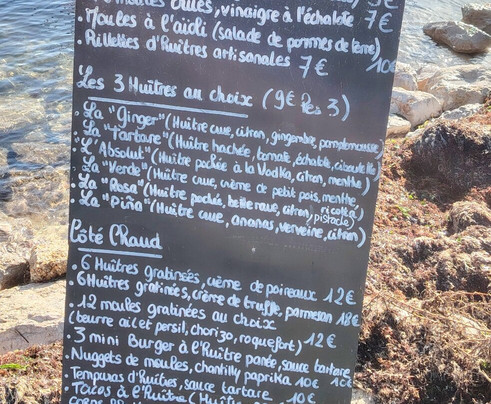 crues, vinaigre à l'échalote 7€
. Moules à l'aïoli (salade de pommes de terre) 10€
. Rillettes d'Huîtres artisanales 7€
Les 3 Huîtres au choix (9€ les 3)
. La "Ginger" (Huître crue, citron, gingembre, pamplemousse)
. La "Tartare" (Huître hachée, tomate, échalote, ciboulette)
. L'"Absolut" (Huître pochée à la Vodka, citron, menthe)
. La "Verde" (Huître crue, crème de petit pois, menthe,
. La "Rosa" (Huître pochée, betterave, citron, ricotta)
pistache)
. La "Piña" (Huître crue, ananas, verveine, citron)
Côté Chaud
. 6 Huîtres gratinées, crème de poireaux 12€
. 6 Huîtres gratinées, crème de truffe, parmesan 18€
. 12 moules gratinées au choix
(beurre ail et persil, chorizo, roquefort) 12€
. 3 mini Burger à l'Huître panée, sauce tartare
. Nuggets de moules, chantilly paprika 10€
Tempuras d'Huîtres, sauce tartare 10€
. Tacos à l'Huître (Huît